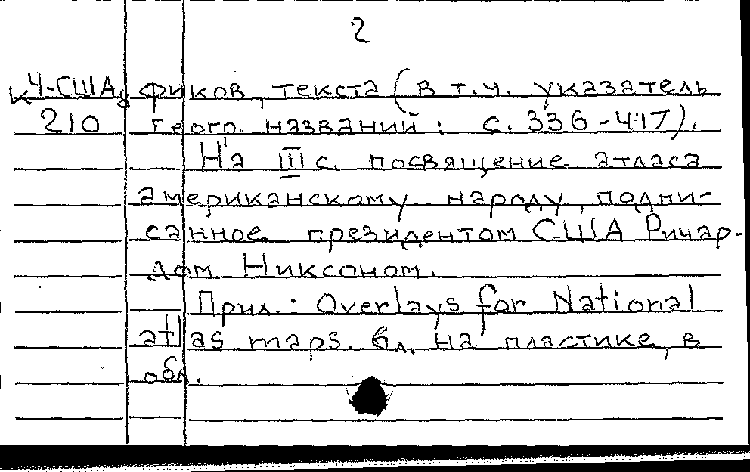 2
К4-США фиков, текста (в т.ч. указатель
210 геогр. названий: с. 336-417).
На III с. посвящение атласа
американскому народу, подпи-
санное президентом США Ричар-
дом Никсоном.
Прил.: Overlays for National
atlas maps. 6 л. на пластике, в
обл.